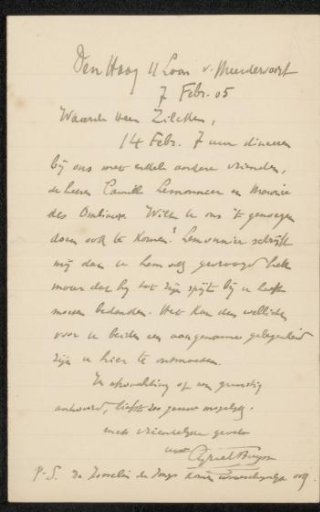 Den Haag 11 Laan v. Meerdervoort
7 Febr. 05
Waarde Heer Zilcken,
14 Febr. 7 uur dineeren
bij ons met enkele andere vrienden,
de heeren Camille Lemonnier en Maurice
des Ombiaux. Wilt u ons 't genoegen
doen ook te komen? Lemonnier schrijft
mij dat u hem ook gevraagd hebt
maar dat hij tot zijn spijt bij u heeft
moeten bedanken. Het kan dan wellicht
voor u beiden een aangename gelegenheid
zijn u hier te ontmoeten.
In afwachting van een gunstig
antwoord, liefst zoo gauw mogelijk,
met vriendelijke groeten
Cyriel Buysse
P.S. De Josselin de Jong komt waarschijnlijk ook.